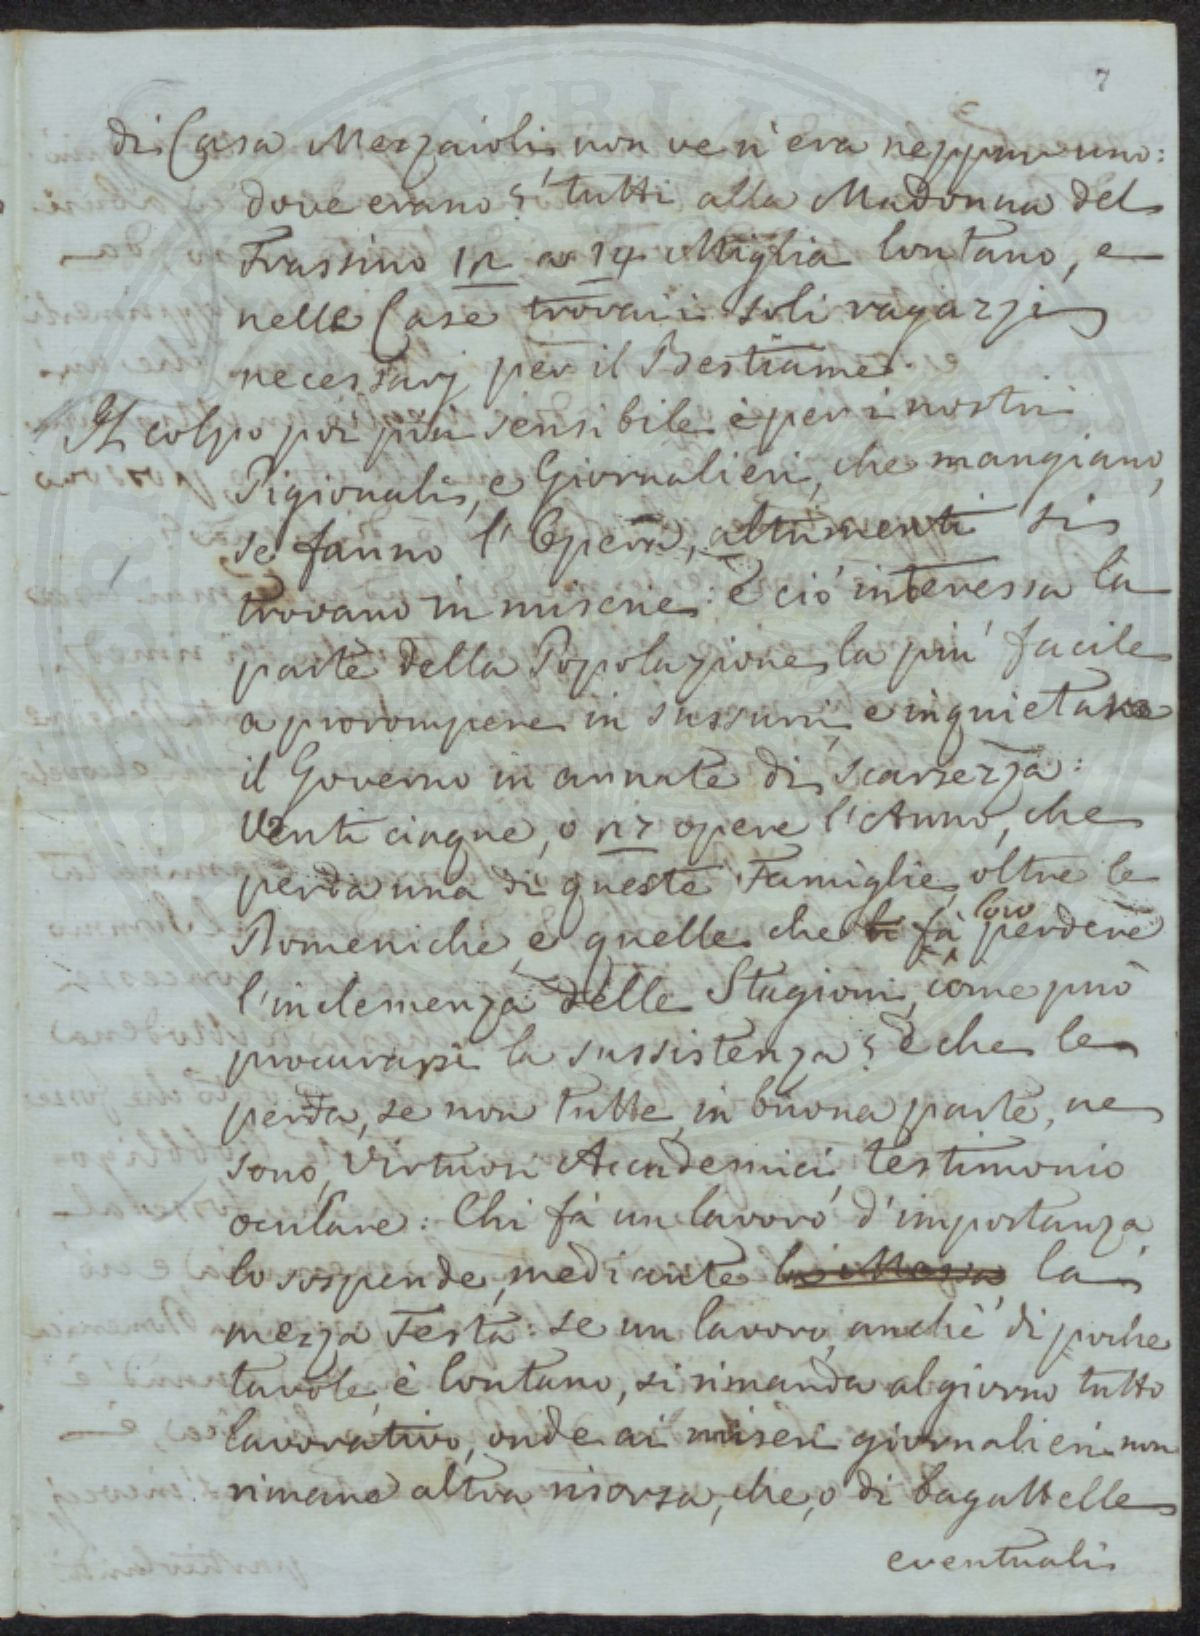 7
di Casa Mezzaioli non ve n'era neppur uno:
dove erano? tutti alla Madonna del
Frassino 12 a 14 Miglia lontano, e
nelle Case trovai i soli ragazzi
necessarj per il Bestiame.
Il colpo poi più sensibile è per i nostri
Pigionali, e Giornalieri, che mangiano,
se fanno l'Opera, altrimenti si
trovano in miserie: e ciò interessa la
parte della Popolazione la più facile
a prorompere in sussurri, e inquietare
il Governo in annate di scarsezza:
Venti cinque, o 27 opere l'Anno, che
perda una di queste Famiglie, oltre le
Domeniche, e quelle che li fà loro perdere
l'inclemenza delle Stagioni, come può
procurarsi la sussistenza? E che le
perda, se non tutte, in buona parte, ne
sono, Virtuosi Accademici, testimonio
oculare: Chi fà un lavoro d'importanza,
lo sospende, mediante la Messa la
mezza Festa: se un lavoro, anche di poche
tavole, è lontano, si rimanda al giorno tutto
lavorativo, onde ai miseri giornalieri non
rimane altra risorsa, che, o di bagattelle
eventuali